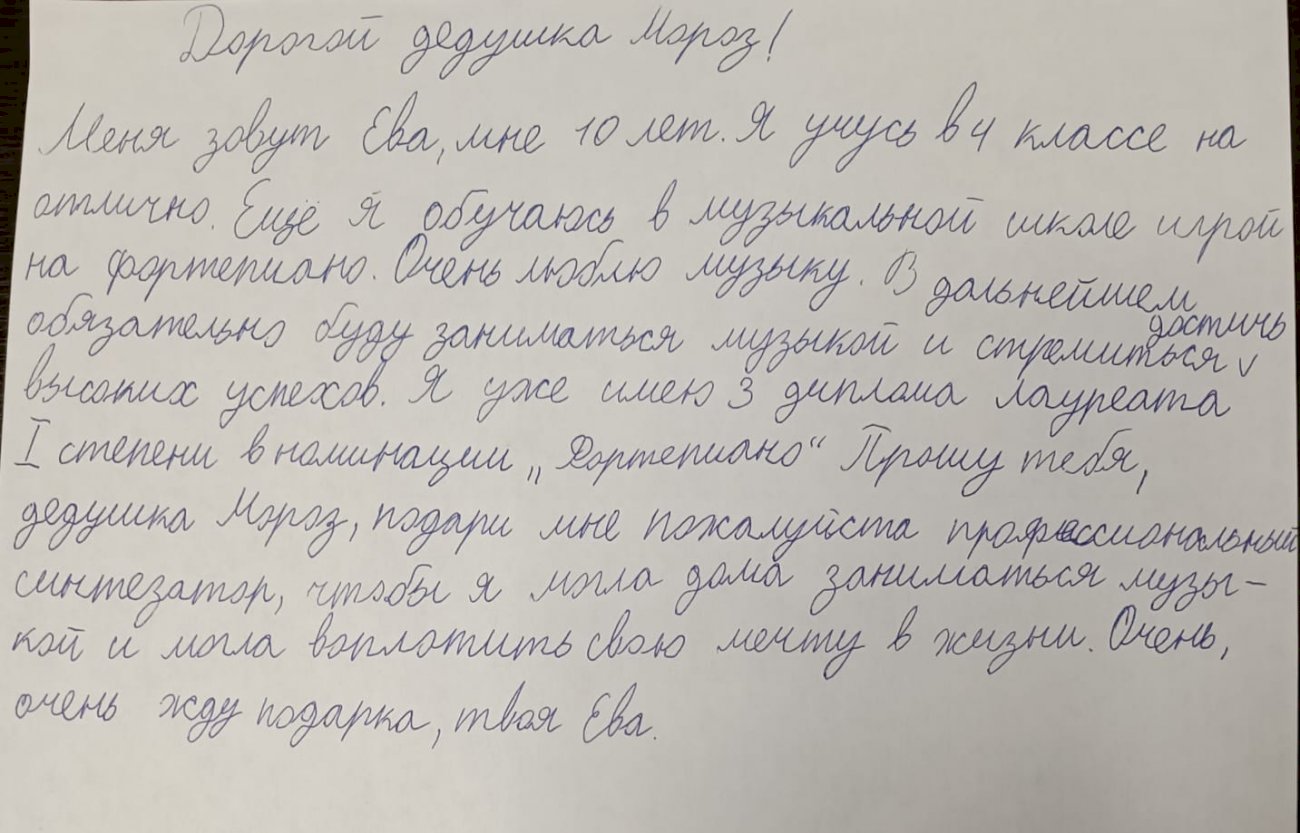 Дорогой дедушка Мороз!
Меня зовут Ева, мне 10 лет. Я учусь в 4 классе на
отлично. Ещё я обучаюсь в музыкальной школе игрой
на фортепиано. Очень люблю музыку. В дальнейшем
обязательно буду заниматься музыкой и стремиться v достичь
высоких успехов. Я уже имею 3 диплома лауреата
I степени в номинации „Фортепиано“ Прошу тебя,
дедушка Мороз, подари мне пожалуйста профессиональный
синтезатор, чтобы я могла дома заниматься музы-
кой и могла воплотить свою мечту в жизни. Очень,
очень жду подарка, твоя Ева.